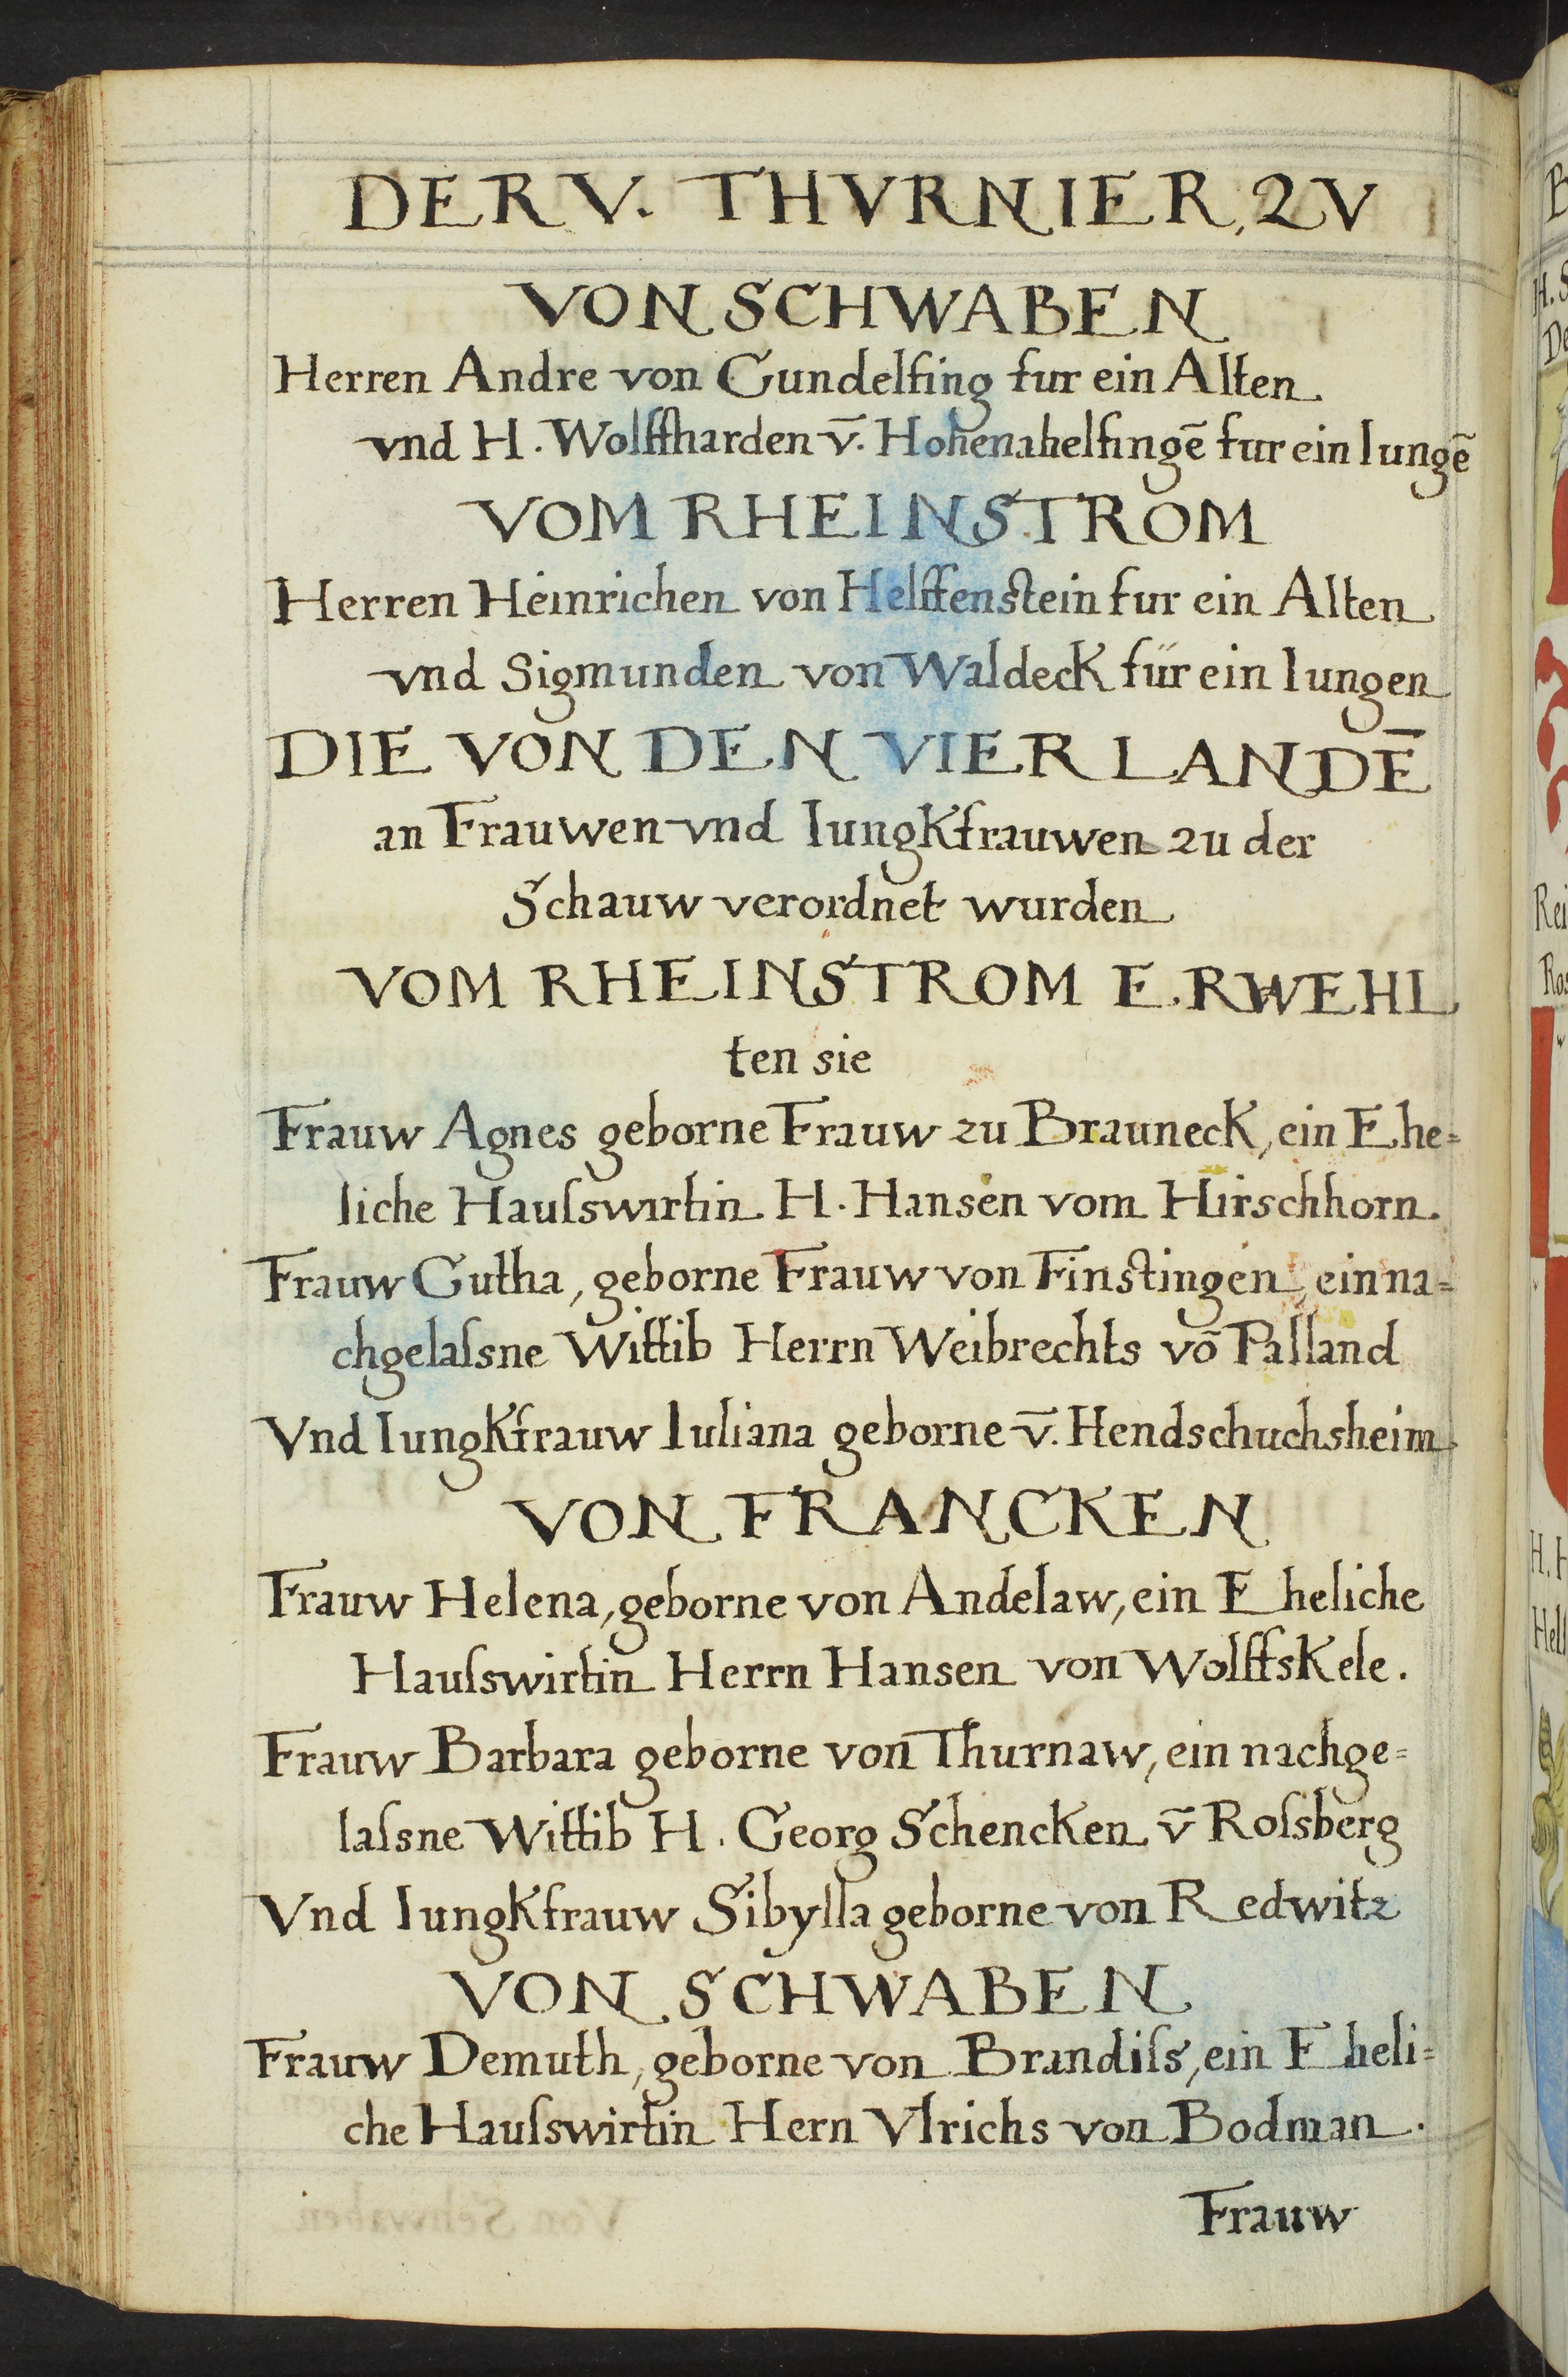 DER V. THVRNIER, ZV
VON SCHWABEN
Herren Andre von Gundelfing fur ein Alten.
vnd H. Wolffharden v̄. Hohenahelfingē fur ein Iungē
VOM RHEINSTROM
Herren Heinrichen von Helffenstein fur ein Alten
vnd Sigmunden von Waldeck für ein Iungen
DIE VON DEN VIER LANDĒ
an Frauwen vnd Iungkfrauwen zu der
Schauw verordnet wurden
VOM RHEINSTROM ERWEHL
ten sie
Frauw Agnes geborne Frauw zu Brauneck, ein Ehe=
liche Hauſswirtin H. Hansen vom Hirschhorn.
Frauw Gutha, geborne Frauw von Finstingen, ein na=
chgelaſsne Wittib Herrn Weibrechts vō Palland
Vnd Iungkfrauw Iuliana geborne v̄. Hendschuchsheim.
VON FRANCKEN
Frauw Helena, geborne von Andelaw, ein Eheliche
Hauſswirtin Herrn Hansen von Wolffskele.
Frauw Barbara geborne von Thurnaw, ein nachge=
laſsne Wittib H. Georg Schencken v̄ Roſsberg
Vnd Iungkfrauw Sibylla geborne von Redwitz
VON SCHWABEN
Frauw Demuth, geborne von Brandiſs, ein Eheli=
che Hauſswirtin Hern Vlrichs von Bodman.
Frauw